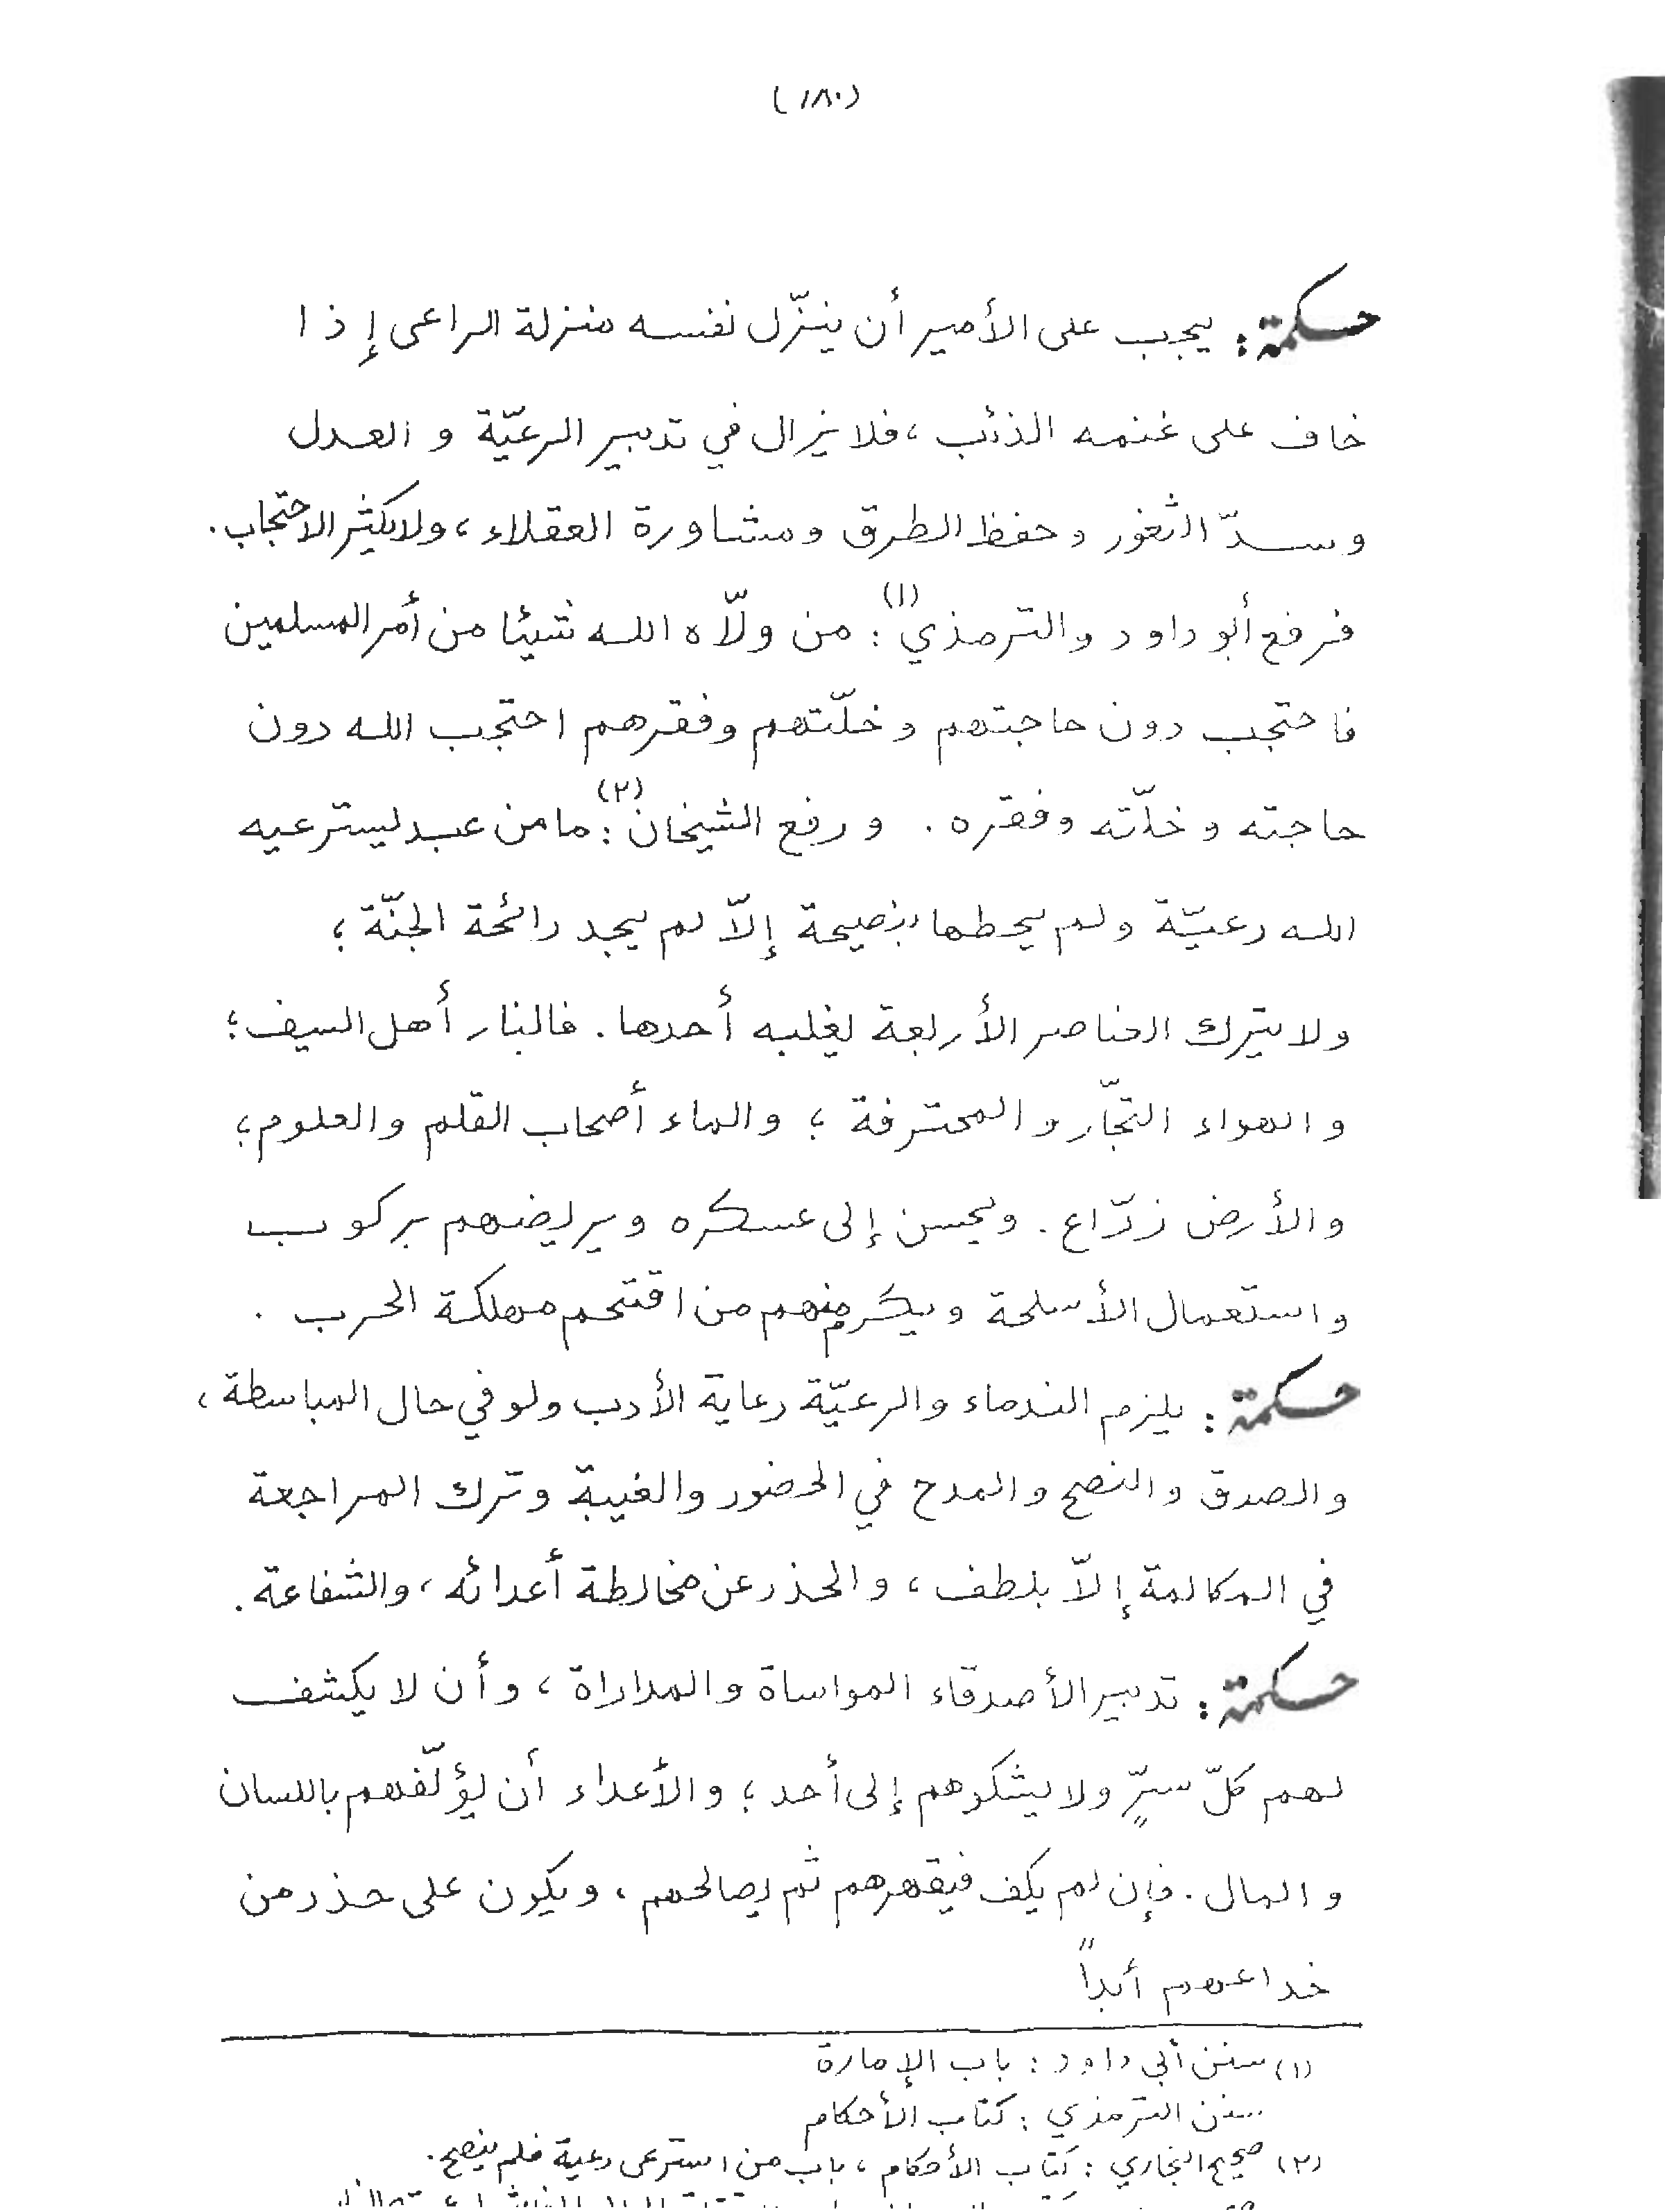 (١٨٠)
حكمة : يجب على الأمير أن ينزّل نفسه منزلة الراعى إذا
خاف على غنمه الذئب ، فلا يزال في تدبير الرعيّة و العدل
وسدّ الثغور وحفظ الطرق ومشاورة العقلاء ، ولا يكثر الاحتجاب .
فرفع أبو داود والترمذي (١) : من ولّاه الله شيئا من أمر المسلمين
فاحتجب دون حاجتهم وخلّتهم وفقرهم احتجب الله دون
حاجته وخلّته وفقره . ورفع الشيخان (٢) : ما من عبد يسترعيه
الله رعيّة ولم يحطها بنصيحة إلّا لم يجد رائحة الجنّة ؛
ولا يترك العناصر الأربعة يغلبه أحدها . فالنار أهل السيف ؛
والهواء التجّار و المحترفة ؛ والماء أصحاب القلم والعلوم ؛
والأرض زرّاع . ويحسن إلى عسكره ويريضهم بركوب
واستعمال الأسلحة ويكرم منهم من اقتحم مهلكة الحرب .
حكمة : يلزم الندماء والرعيّة رعاية الأدب ولو في حال المباسطة ،
والصدق والنصح والمدح في الحضور والغيبة وترك المراجعة
في المكالمة إلّا بلطف ، والحذر عن مخالطة أعدائه ، والشفاعة .
حكمة : تدبير الأصدقاء المواساة والمداراة ، وأن لا يكشف
لهم كلّ سرٍّ ولا يشكوهم إلى أحد ؛ والأعداء أن يؤلّفهم باللسان
والمال . فإن لم يكف فيقهرهم ثم يصالحهم ، ويكون على حذر من
خداعهم أبداً
(١) سنن أبي داود : باب الإمارة
سنن الترمذي : كتاب الأحكام
(٢) صحيح البخاري : كتاب الأحكام ، باب من استرعى رعية فلم ينصح .